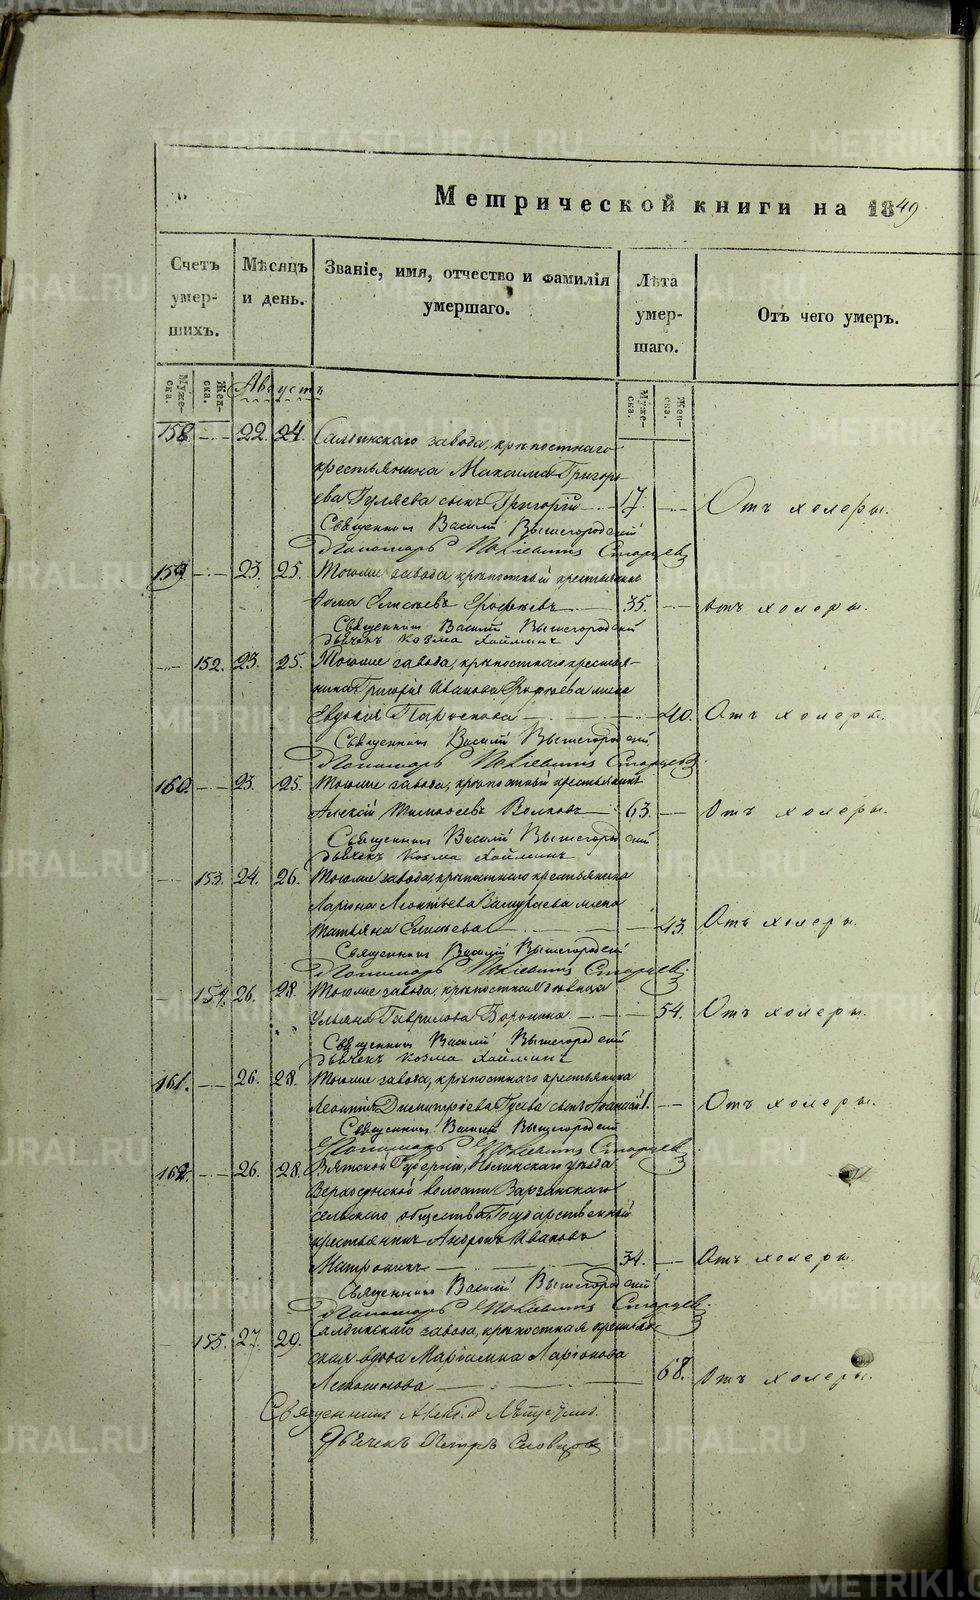 Метрической книги на 1849
Счетъ умершихъ.
Мѣсяцъ и день.
Званіе, имя, отчество и фамилія умершаго.
Лѣта умершаго.
Отъ чего умеръ.
Мужеска. Женска.
Августъ
Мужеска. Женска.
158. 22. 24. Салдинскаго завода, крѣпостнаго
крестьянина Максима Григорь-
ева Гуляева сынъ Григорій 17. Отъ холеры.
Священникъ Василій Вышегородскій
Пономарь Старцев
159. 23. 25. Тогоже завода крѣпостный крестьянинъ
Фома Елисѣевъ Ерофѣевъ 35. Отъ холеры.
Священникъ Василій Вышегородскій
Дьячекъ Козма Хайминъ
152. 23. 25. Тогоже завода, крѣпостнаго крестья-
нина Григорія Иванова жена
Евдокія 40. Отъ холеры.
Священникъ Василій Вышегородскій
Пономарь Старцев
160. 23. 25. Тогоже завода, крѣпостный крестьянинъ
Алексій Тимофеевъ Волковъ 63. Отъ холеры.
Священникъ Василій Вышегородскій
Дьячекъ Козма Хайминъ
153. 24. 26. Тогоже завода, крѣпостнаго крестьянина
Ларіона Леонтьева жена
Татьяна Елисѣева 43. Отъ холеры.
Священникъ Василій Вышегородскій
Пономарь Старцев
154. 26. 28. Тогоже завода, крѣпостная вдовица
Ульяна Гаврилова 54. Отъ холеры.
Священникъ Василій Вышегородскій
Дьячекъ Козма Хайминъ
161. 26. 28. Тогоже завода, крѣпостнаго крестьянина
Леонтія Димитріева Гусева сынъ Аѳанасій 1. Отъ холеры.
Священникъ Василій Вышегородскій
Пономарь Старцев
162. 26. 28. Вятской Губерніи, Нолинскаго уѣзда
волости
сельскаго общества Государственный
крестьянинъ Андронъ Ивановъ
34. Отъ холеры.
Священникъ Василій Вышегородскій
Пономарь Старцев
155. 27. 29. Салдинскаго завода, крѣпостная крестьян-
ская вдова Маріамна Ларіонова
68. Отъ холеры.
Священникъ Алексій
Дьячекъ Петръ Словцовъ
METRIKI.GASO-URAL.RU